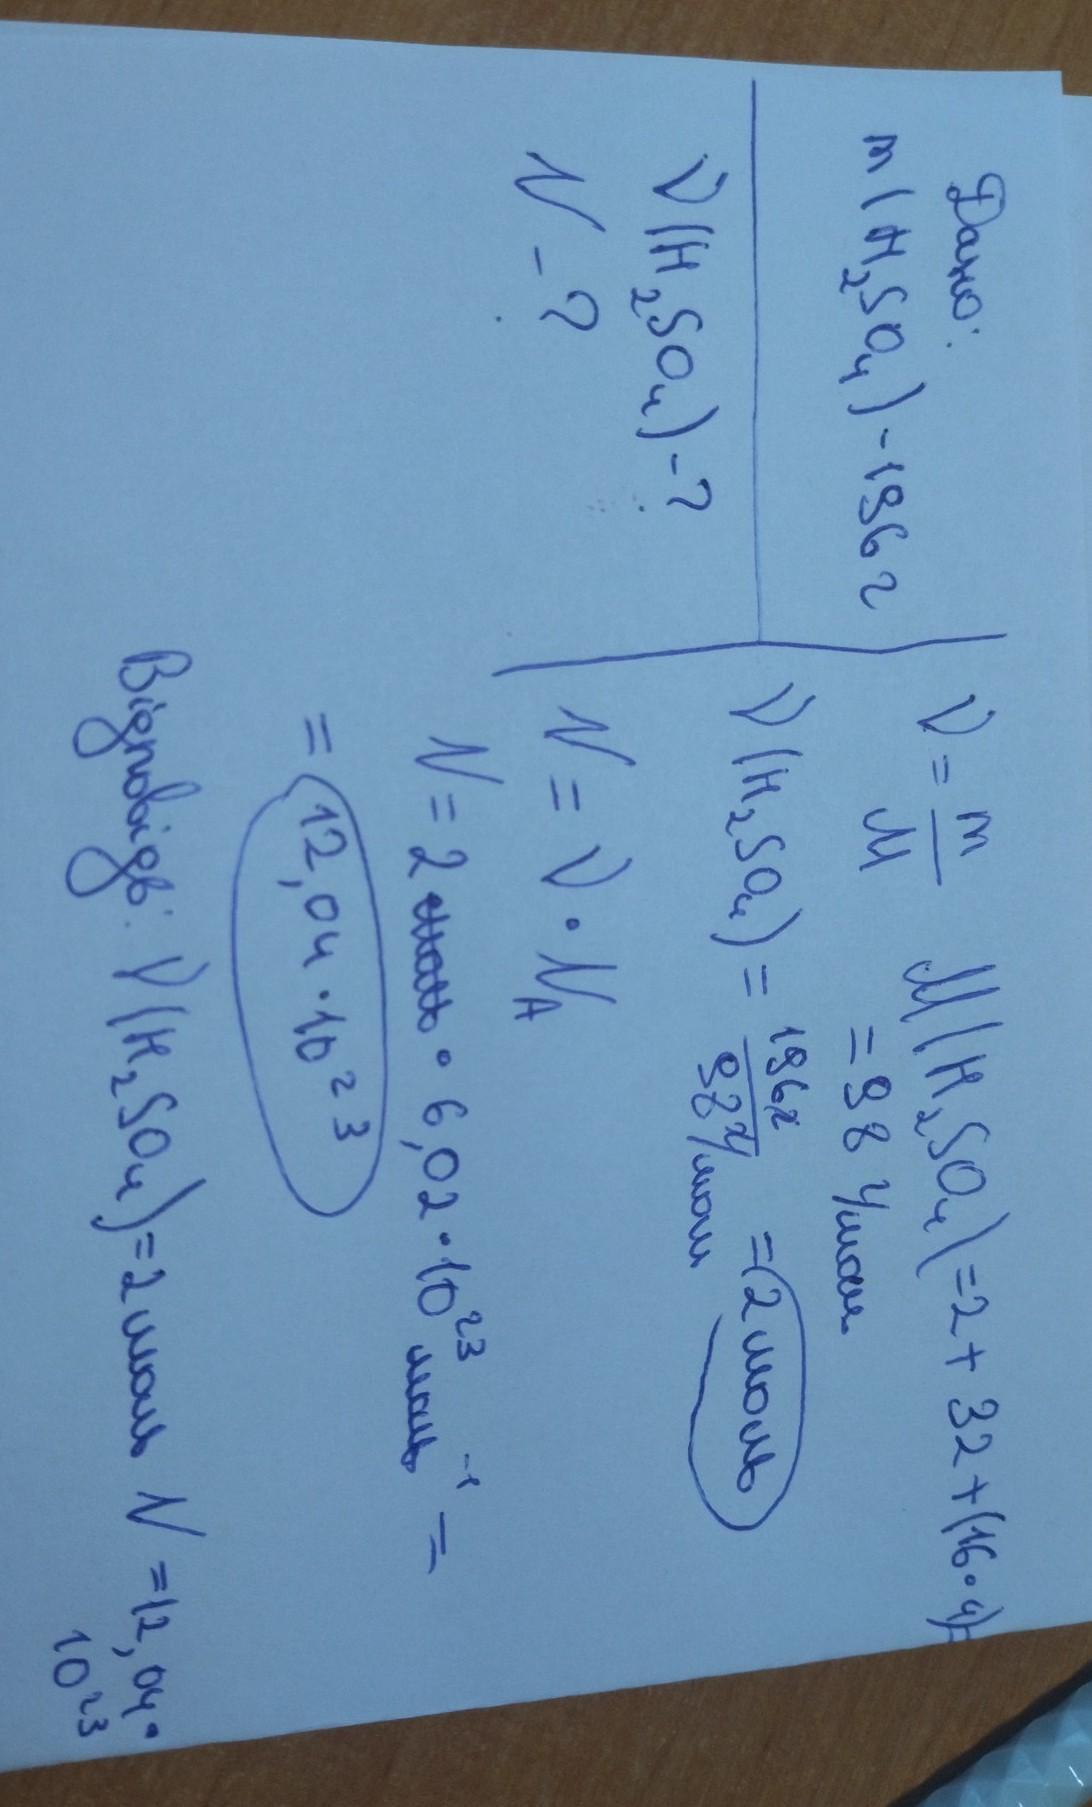 Дано:
m(H₂SO₄) - 196 г
ν(H₂SO₄) - ?
N - ?
ν = m/M M(H₂SO₄) = 2 + 32 + (16 · 4) =
= 98 г/моль
ν(H₂SO₄) = 196г / 98 г/моль = 2 моль
N = ν · N_A
N = 2 моль · 6,02 · 10²³ моль⁻¹ =
= 12,04 · 10²³
Відповідь: ν(H₂SO₄) = 2 моль N = 12,04 ·
10²³